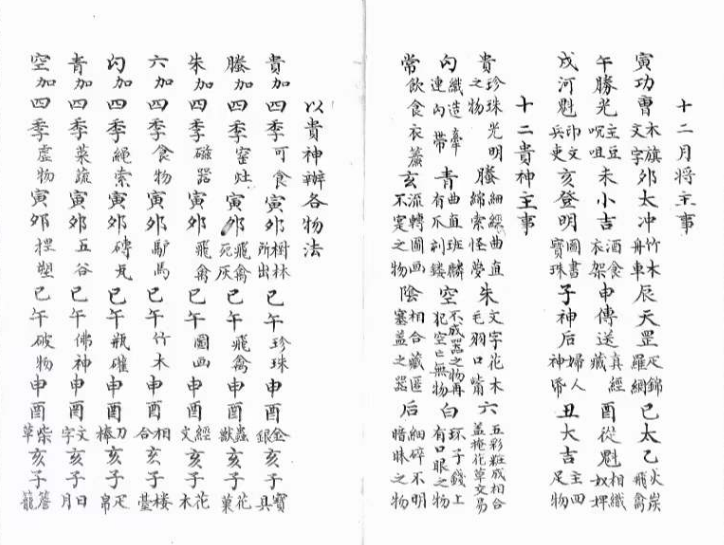 十二月将主事
寅功曹木旗文字夘太冲竹木舟車辰天罡疋錦羅網巳太乙火炭飛禽
午勝光主豆呪咀未小吉酒食衣架申傳送真經藏酉從魁相織奴婢
戌河魁印文兵吏亥登明圖書寳珠子神后婦人神昏丑大吉主四足物
十二貴神主事
貴珍珠光明之物螣細繞曲直綿索怪夢朱文字花木毛羽口嘴六五彩粧成相合蓋掩花草文易
勾織造牽連勾帶青曲直班麟有爪刻鏤空不成器之物再犯空亡無物白环子錢上有口眼之物
常飲食衣蓆玄流轉圖画不定之物陰相合藏匿塞盖之器后細碎不明暗昧之物
以貴神辦各物法
貴加四季可食寅夘樹林所出巳午珍珠申酉金銀亥子寳具
螣加四季窑灶寅夘飛禽死灰巳午飛禽申酉蟲獸亥子花菓
朱加四季磁器寅夘飛禽巳午圖画申酉經文亥子花木
六加四季食物寅夘驢馬巳午竹木申酉相合亥子楼臺
勾加四季繩索寅夘磚瓦巳午瓶礶申酉刀棒亥子疋帛
青加四季菜蔬寅夘五谷巳午佛神申酉文字亥子日月
空加四季虚物寅夘捏塑巳午破物申酉柴草亥子簷籠